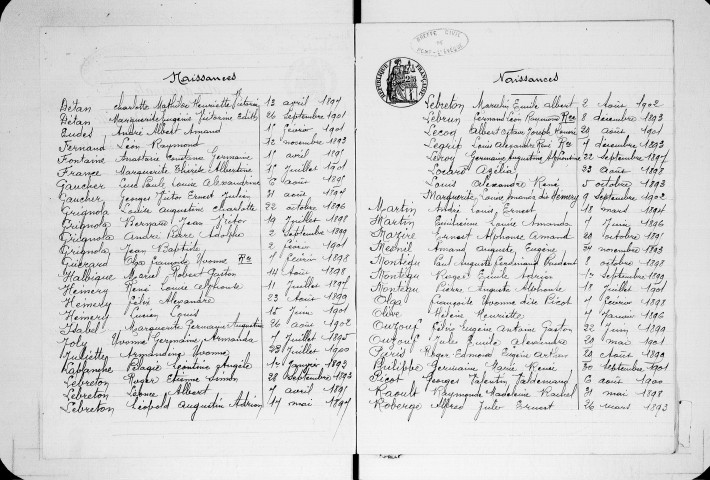 Naissances
Détan Charlotte Mathilde Henriette Victorine 13 avril 1897
Détan Marguerite Eugénie Victorine Edith 26 Septembre 1901
Eudes André Albert Amand 1r février 1901
Fernand Léon Raymond 12 novembre 1893
Fontaine Anastasie Constance Germaine 1r avril 1891
France Marguerite Thérèse Albertine 15 Juillet 1901
Gaucher Lucie Paule Louise Alexandrine 6 août 1895
Gaucher Georges Victor Ernest Julien 31 août 1894
Grignola Louise Augustine Charlotte 22 octobre 1896
Grignola Bernard Jean Victor 19 Juillet 1898
Grignola André Pierre Adolphe 2 Septembre 1899
Grignola Jean Baptiste 2 février 1901
Guérard Olga Françoise Yvonne Rce 4 février 1898
Halbique Marcel Robert Gaston 14 Août 1898
Hemery René Louis Alphonse 11 Juillet 1897
Hemery Félix Alexandre 23 Août 1899
Hemery Lucien Louis 15 Juin 1901
Isabel Marguerite Germaine Augustine 26 août 1902
Joly Yvonne Germaine Armanda 7 Juillet 1895
Juliette Armandine Yvonne 23 Juillet 1900
Lablanche Léontine Angèle 17 Janvier 1893
Lebreton Roger Etienne Simon 28 Septembre 1893
Lebreton Léonce Albert 7 avril 1895
Lebreton Léopold Augustin Adrien 17 mai 1897
RÉPUBLIQUE FRANÇAISE
GREFFE CIVIL
DE
PONT-L'ÉVÊQUE
Naissances
Lebreton Marcelin Emile Albert 2 Août 1902
Lebrun Fernand Léon Raymond Rce 8 décembre 1893
Lecoq Albert Joseph 20 août 1901
Legrix Louis Alexandre René Rce 7 décembre 1893
Leroy Germaine Augustine 22 Septembre 1897
Locard 23 Août 1898
Louis Alexandre René 5 octobre 1893
Marguerite Louise 9 Septembre 1902
Martin André Louis Ernest 18 mars 1894
Martin Emilienne Louise Amanda 8 Juin 1896
Mazire Ernest Alphonse Amand 20 octobre 1901
Mesnil Amand Auguste Eugène 30 novembre 1893
Montégu Paul Auguste Ferdinand Prudent 8 octobre 1898
Montégu Roger Emile Adrien 17 Septembre 1899
Montégu Pierre Auguste Alphonse 18 Juillet 1901
Olga Françoise Yvonne dite Picot 4 février 1898
Olive Hélène Henriette 7 Janvier 1896
Ouzouf Félix Eugène Antoine Gaston 22 Juin 1899
Ouzouf Jules Emile Alexandre 20 mai 1901
Paris Roger Edmond Eugène Arthur 20 Août 1893
Philippe Germaine Marie Renée 30 Septembre 1901
Picot Georges Valentin Valdemard 6 août 1900
Raoult Raymonde Madeleine Rachel 31 mai 1898
Roberge Alfred Jules Ernest 26 mars 1893